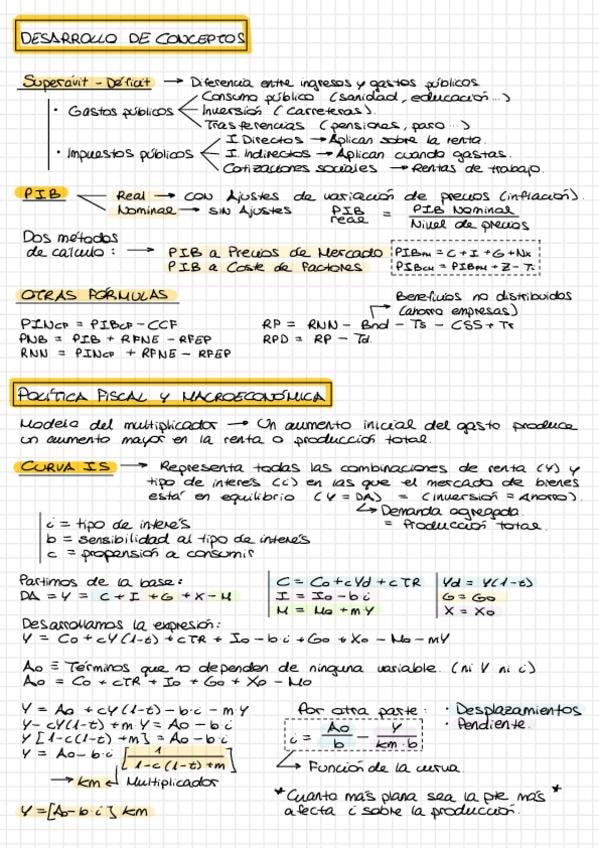 DESARROLLO DE CONCEPTOS
Superávit - Déficit → Diferencia entre ingresos y gastos públicos
· Gastos públicos
Consumo público (sanidad, educación...)
Inversión (carreteras).
Trasferencias (pensiones, paro...)
· Impuestos públicos
I Directos → Aplican sobre la renta.
I. Indirectos → Aplican cuando gastas.
Cotizaciones sociales → Rentas de trabajo.
PIB
Real → CON Ajustes de variación de precios (inflación).
Nominal → SIN Ajustes
PIB real = PIB Nominal / Nivel de precios
Dos métodos de calculo: →
PIB a Precios de Mercado
PIB a Coste de Factores
PIBpm = C + I + G + Nx
PIBcm = PIBpm + Z - Ti
OTRAS FÓRMULAS
Beneficios no distribuidos
(ahorro empresas)
PINcp = PIBcp - CCF
RP = RNN - Bnd - Ts - CSS + Tr
PNB = PIB + RFNE - RFEP
RPD = RP - Td.
RNN = PINcp + RFNE - RFEP
POLÍTICA FISCAL Y MACROECONÓMICA
Modelo del multiplicador → Un aumento inicial del gasto produce
un aumento mayor en la renta o producción total.
CURVA IS → Representa todas las combinaciones de renta (Y) y
tipo de interés (i) en las que el mercado de bienes
está en equilibrio (Y = DA) = (inversión = Ahorro).
↳ Demanda agregada
= Producción total.
i = tipo de interés
b = sensibilidad al tipo de interés
c = propensión a consumir
Partimos de la base:
DA = Y = C + I + G + X - M
C = Co + cYd + cTR
I = Io - bi
M = Mo + mY
Yd = Y(1-t)
G = Go
X = Xo
Desarrollamos la expresión:
Y = Co + cY(1-t) + cTR + Io - b·i + Go + Xo - Mo - mY
Ao = Términos que no dependen de ninguna variable. (ni Y ni i)
Ao = Co + cTR + Io + Go + Xo - Mo
Y = Ao + cY(1-t) - b·i - mY
Y - cY(1-t) + m·Y = Ao - b·i
Y [1-c(1-t) + m] = Ao - b·i
Y = Ao - b·i [1 / 1-c(1-t)+m]
→ km ↲ Multiplicador
Y = [Ao - b·i] km
Por otra parte:
· Desplazamientos
· Pendiente.
i = Ao / b - Y / km·b
↳ Función de la curva.
* Cuanto más plana sea la pte más *
afecta i sobre la producción.